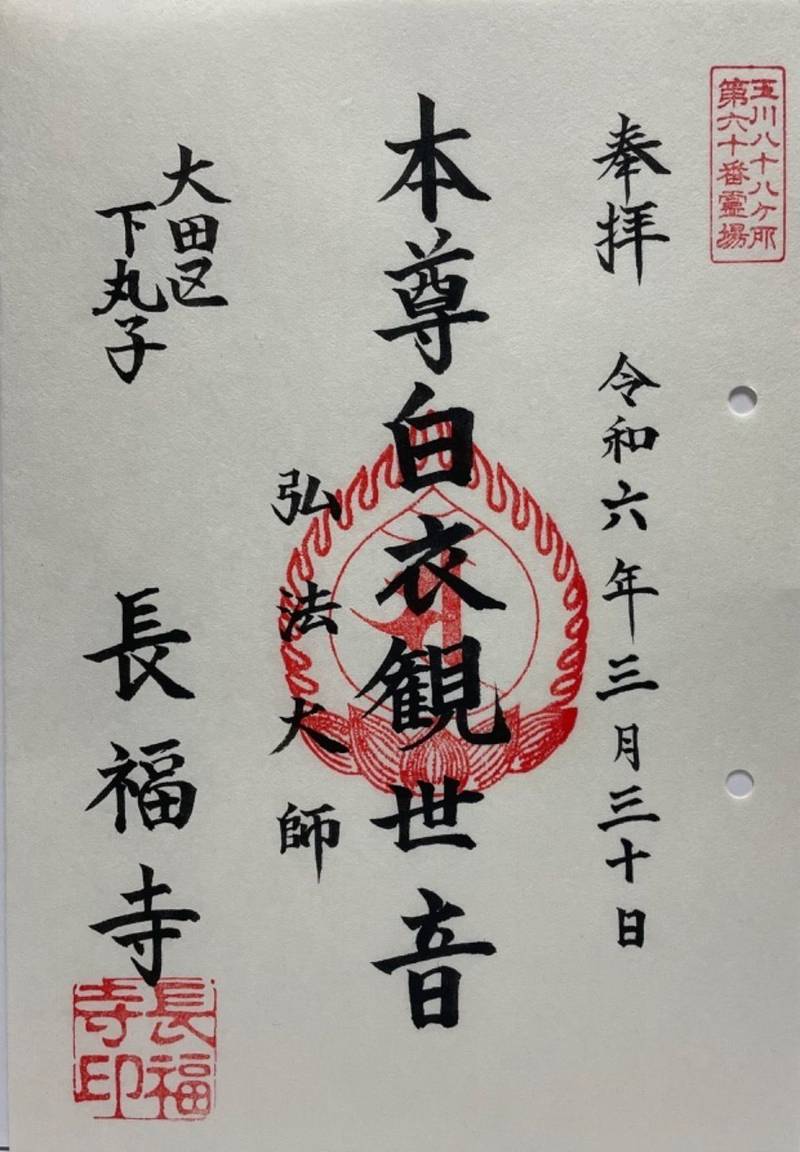 玉川八十八ヶ所
第六十番霊場
奉拝 令和六年三月三十日
本尊白衣観世音
弘法大師
大田区
下丸子
長福寺
長福
寺印